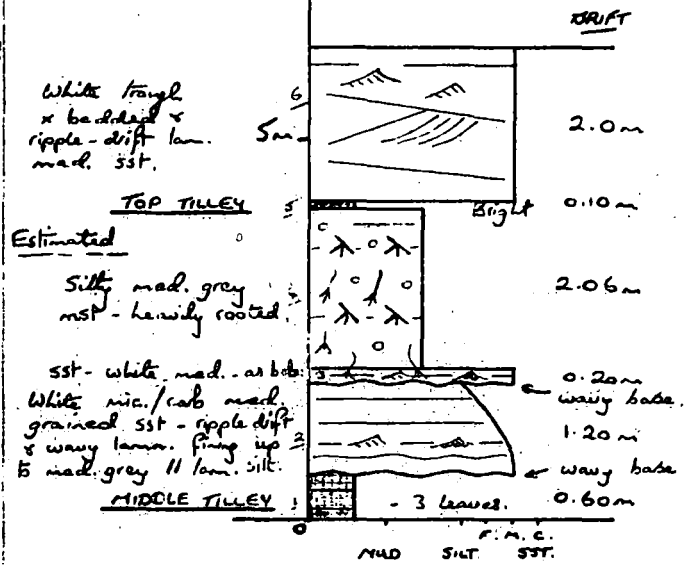 DRIFT
White trough
x bedded &
ripple-drift lam.
med. sst.
6
5m
2.0m
TOP TILLEY
5
Bright
0.10m
Estimated
Silty med. grey
mst - heavily rooted.
2.06m
sst - white med. - as bel.
3
0.20m
wavy base.
White mic./carb med.
grained sst - ripple drift
& wavy lamn. fining up
to med. grey // lam. silt.
2
1.20m
wavy base
MIDDLE TILLEY
1
- 3 leaves.
0.60m
0
F. M. C.
MUD SILT SST.